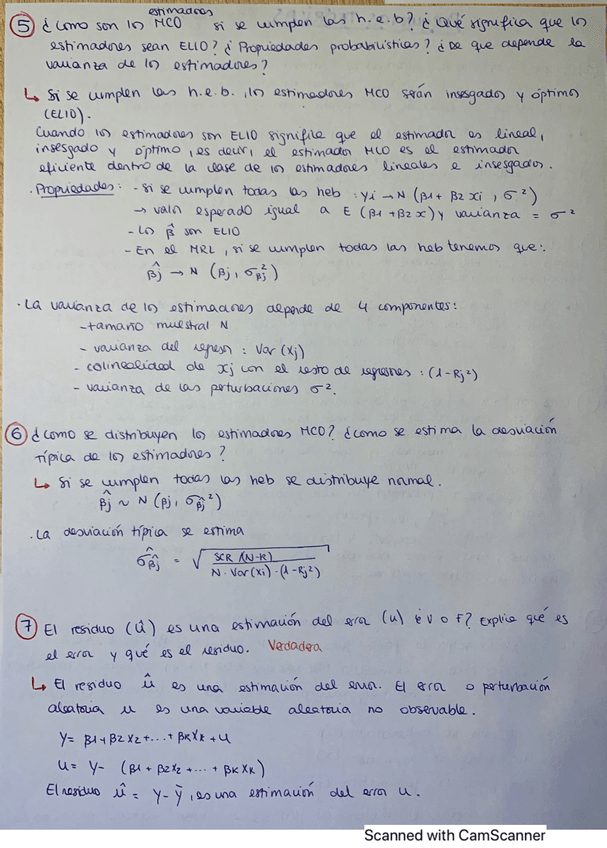 estimadores
5 ¿Cómo son los MCO si se cumplen las h.e.b? ¿Qué significa que los
estimadores sean ELIO? ¿Propiedades probabilísticas? ¿De que depende la
varianza de los estimadores?
↳ Si se cumplen las h.e.b., los estimadores MCO serán insesgados y óptimos
(ELIO).
Cuando los estimadores son ELIO significa que el estimador es lineal,
insesgado y óptimo, es decir, el estimador MCO es el estimador
eficiente dentro de la clase de los estimadores lineales e insesgados.
· Propiedades: - Si se cumplen todas las heb: Yi → N (β1 + β2 Xi, σ²)
→ valor esperado igual a E (β1 + β2 x) y varianza = σ²
- Los β̂ son ELIO
- En el MRL, si se cumplen todas las heb tenemos que:
β̂j → N (βj, σ²β̂j)
· La varianza de los estimadores depende de 4 componentes:
- tamaño muestral N
- varianza del regresor: Var (Xj)
- colinealidad de Xj con el resto de regresores: (1-Rj²)
- varianza de las perturbaciones σ².
6 ¿Cómo se distribuyen los estimadores MCO? ¿Cómo se estima la desviación
típica de los estimadores?
↳ Si se cumplen todas las heb se distribuye normal.
β̂j ~ N (βj, σβ̂j²)
· La desviación típica se estima
σ̂β̂j = √ SCR /(N-K) / N · Var(Xi) · (1-Rj²)
7 El residuo (û) es una estimación del error (u) ¿V o F? Explica qué es
el error y qué es el residuo. Verdadera
↳ El residuo û es una estimación del error. El error o perturbación
aleatoria u es una variable aleatoria no observable.
Y = β1 + β2 X2 + ... + βK XK + u
u = Y - (β1 + β2 X2 + ... + βK XK)
El residuo û = Y - Ŷ, es una estimación del error u.
Scanned with CamScanner